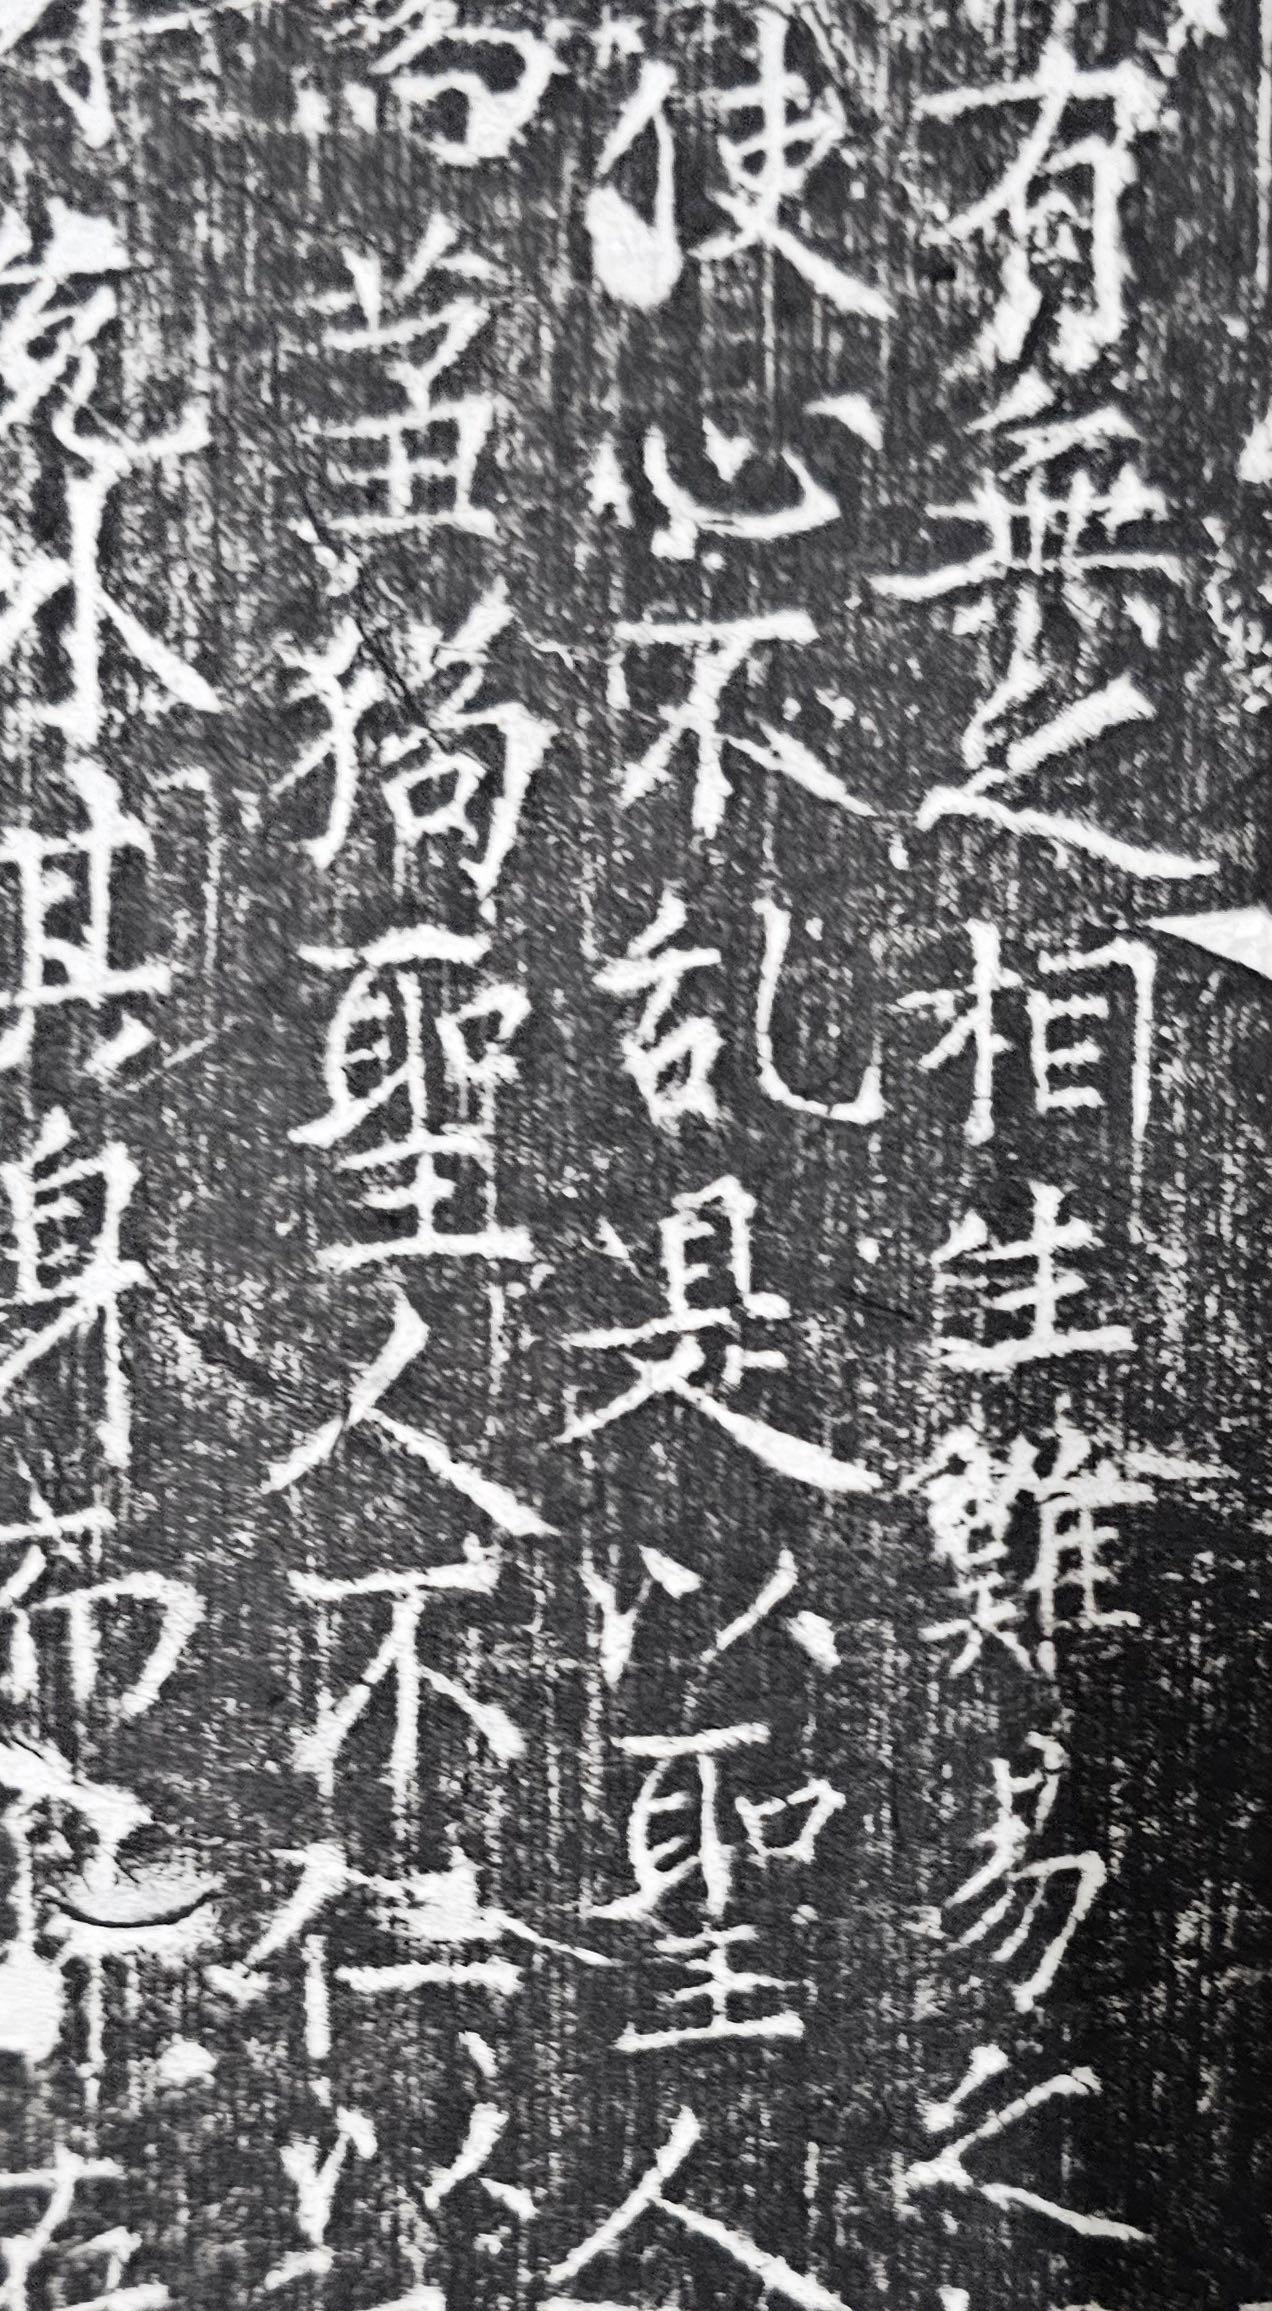 有無之相生難易之
使心不乱是以聖人
為芻狗聖人不仁以
後其身而